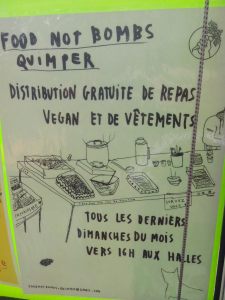 FOOD NOT BOMBS
QUIMPER
DISTRIBUTION GRATUITE DE REPAS
VEGAN ET DE VÊTEMENTS
SERVEZ
VOUS
TOUS LES DERNIERS
DIMANCHES DU MOIS
VERS 16H AUX HALLES